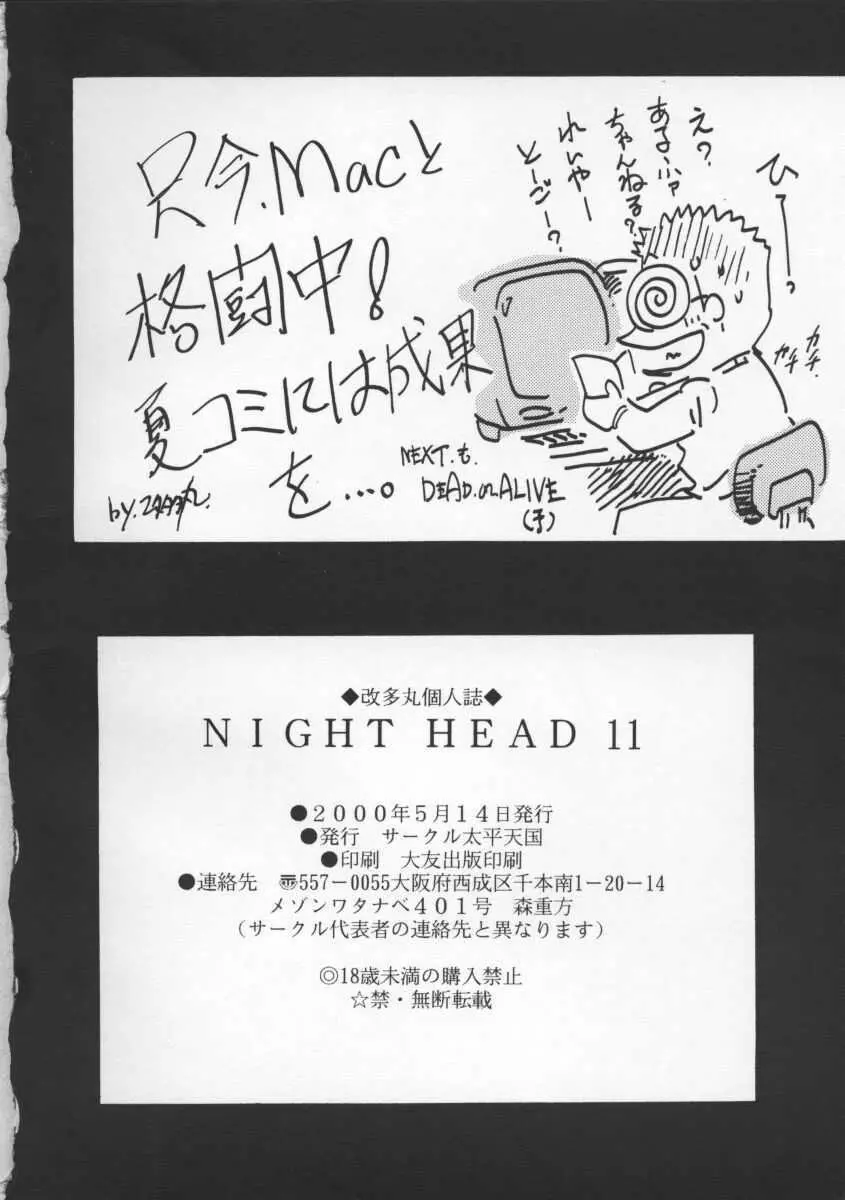 只今.Macと
格闘中!
夏コミには成果
を…。
え?
あるふァ
ちゃんねる?
れいやー
とーごー?
ひーっ
カチ
カチ.
NEXT.も.
DEAD.or ALIVE
(予)
◆改多丸個人誌◆
NIGHT HEAD 11
●2000年5月14日発行
●発行 サークル太平天国
●印刷 大友出版印刷
●連絡先 〠557-0055大阪府西成区千本南1-20-14
メゾンワタナベ401号 森重方
(サークル代表者の連絡先と異なります)
◎18歳未満の購入禁止
☆禁・無断転載